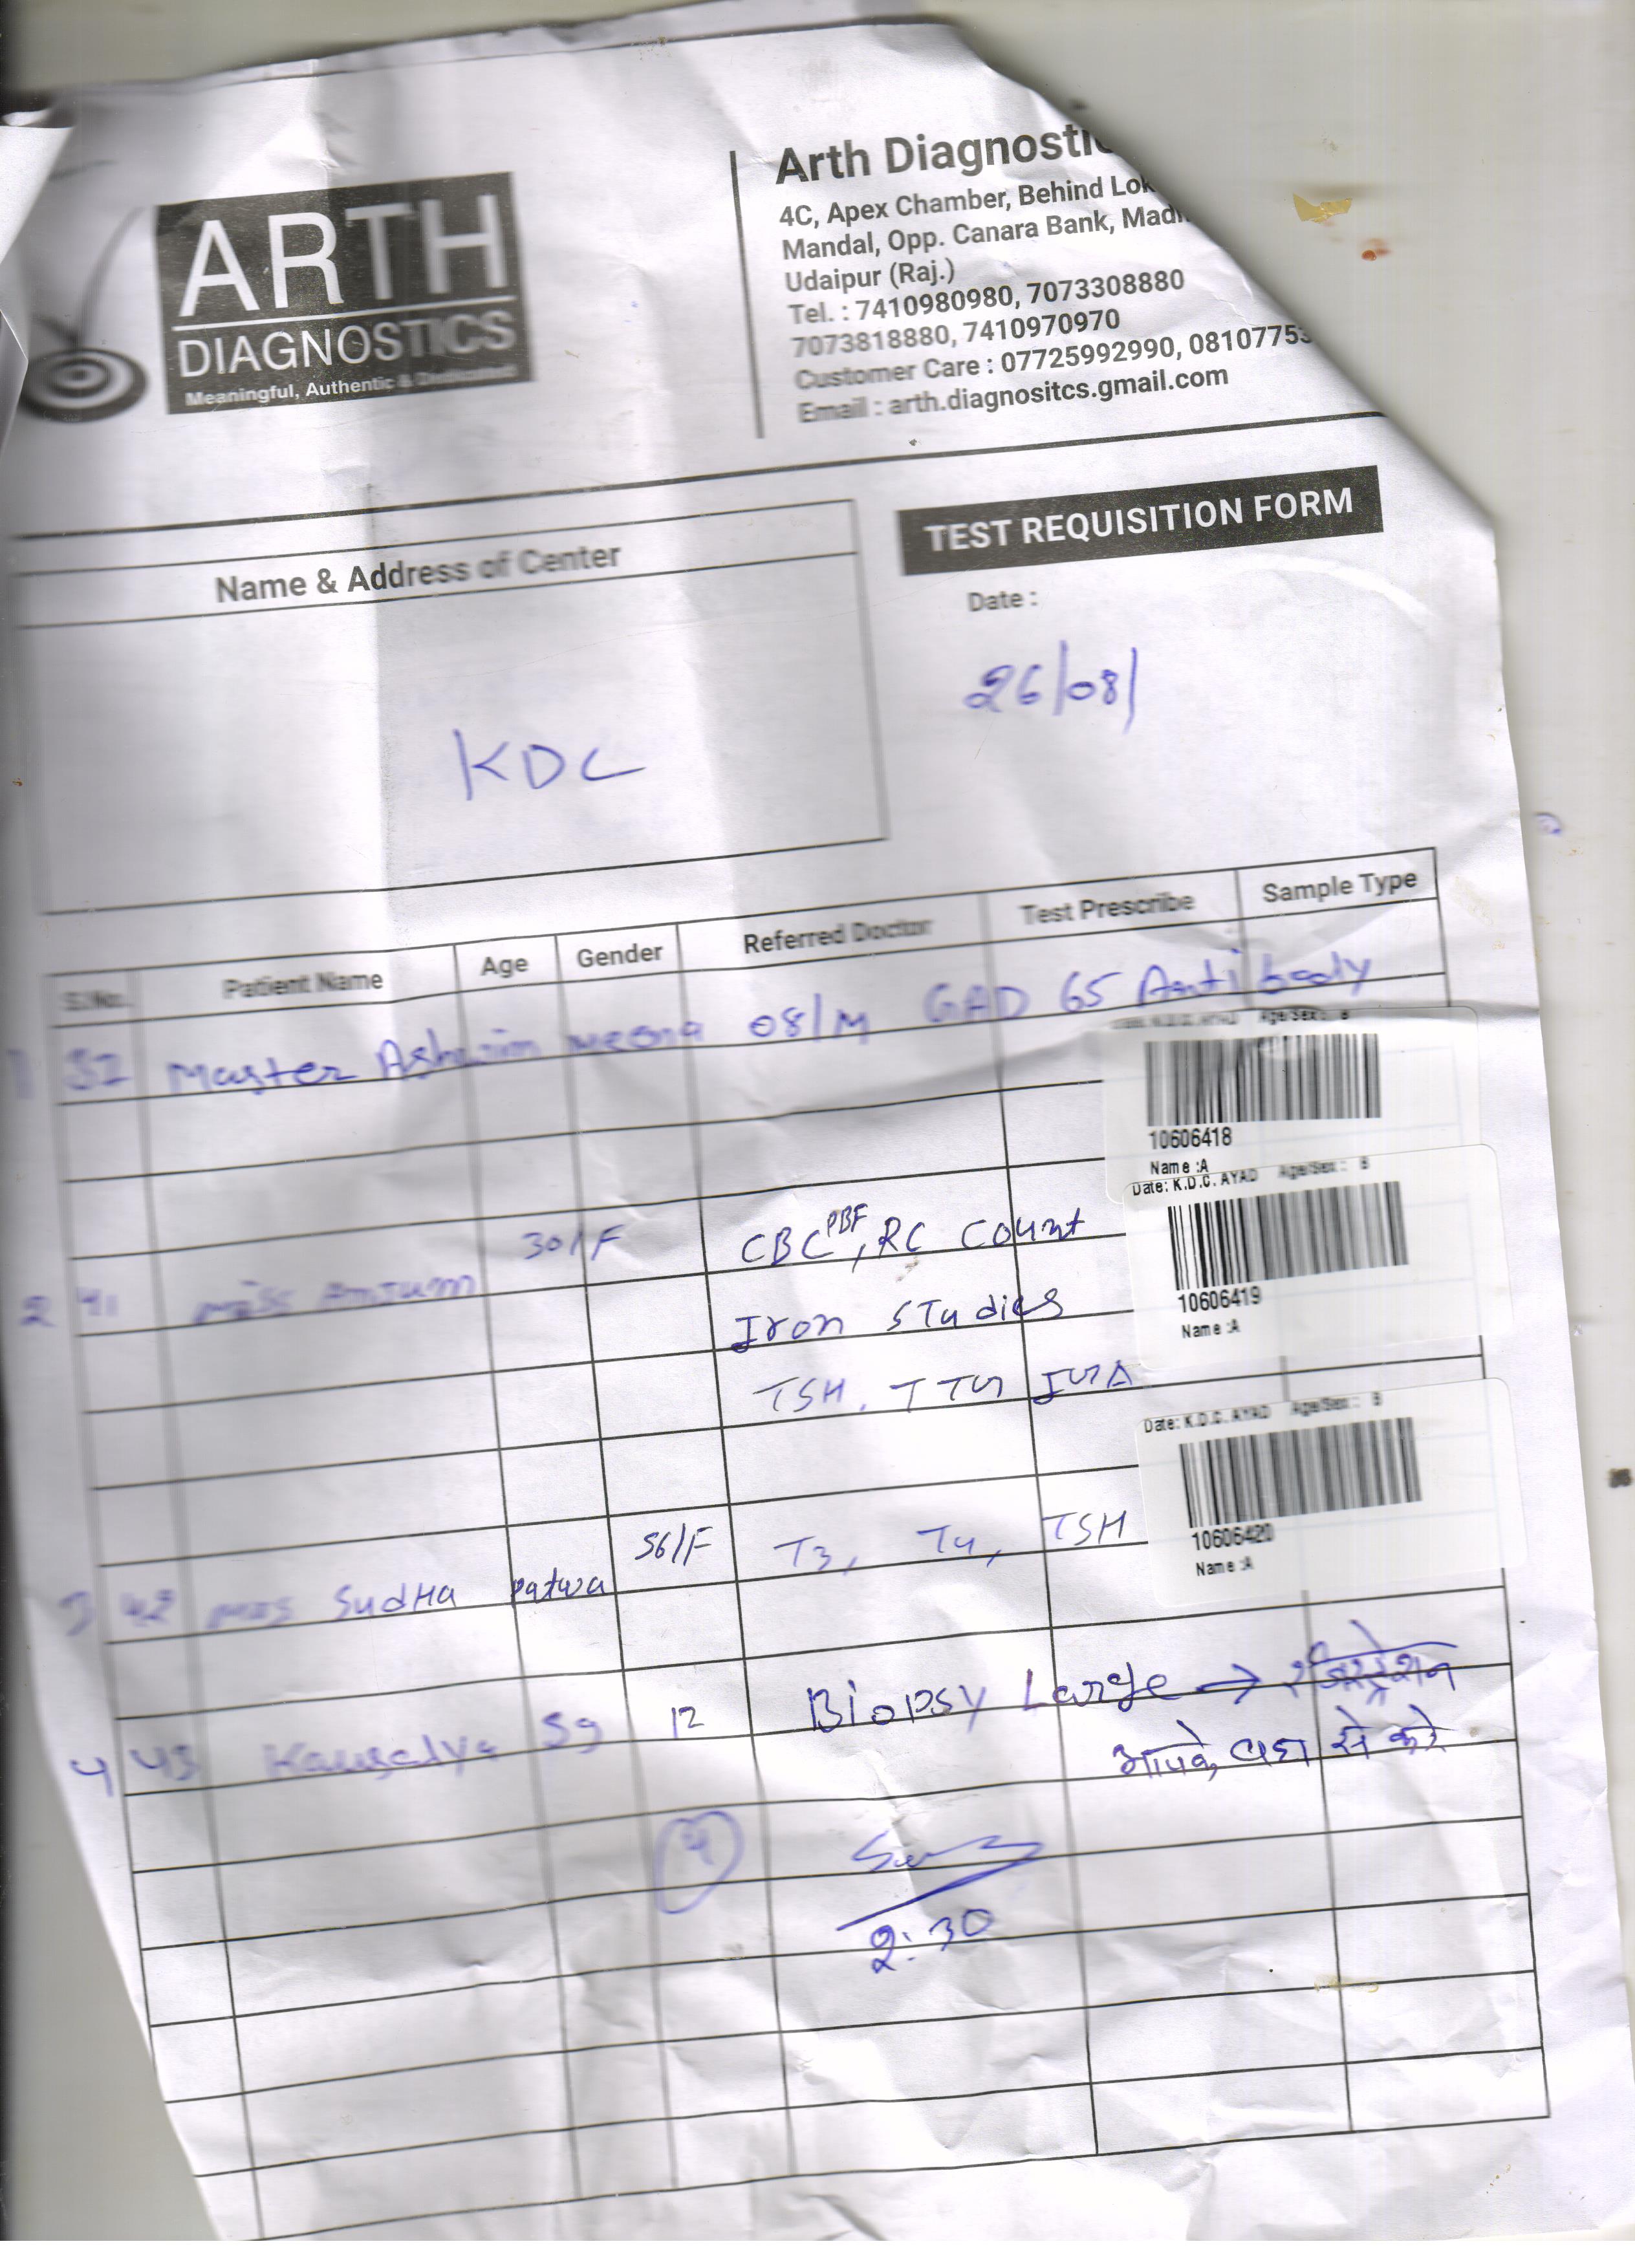 ARTH
DIAGNOSTICS
Meaningful, Authentic &
Arth Diagnostic
4C, Apex Chamber, Behind Lok
Mandal, Opp. Canara Bank, Madh
Udaipur (Raj.)
Tel. : 7410980980, 7073308880
7073818880, 7410970970
Customer Care : 07725992990, 08107753
Email : arth.diagnositcs.gmail.com
TEST REQUISITION FORM
Name & Address of Center
Date :
26/08/
KDC
S.No. Patient Name Age Gender Referred Doctor Test Prescribe Sample Type
Master meena 08/M GAD 65 Antibody
Age/Sex : B
10606418
Name :A
2 41 Miss Anjum 30/F CBC PBF, RC Count
Date: K.D.C. AYAD Age/Sex : B
10606419
Name :A
Iron Studies
TSH, TTG IGA
Date: K.D.C. AYAD Age/Sex : B
10606420
Name :A
3 42 Mrs Sudha Patwa 56/F T3, T4, TSH
4 43 Kausalya 59 Biopsy Large →
आपके यहा से करे
4
2:30